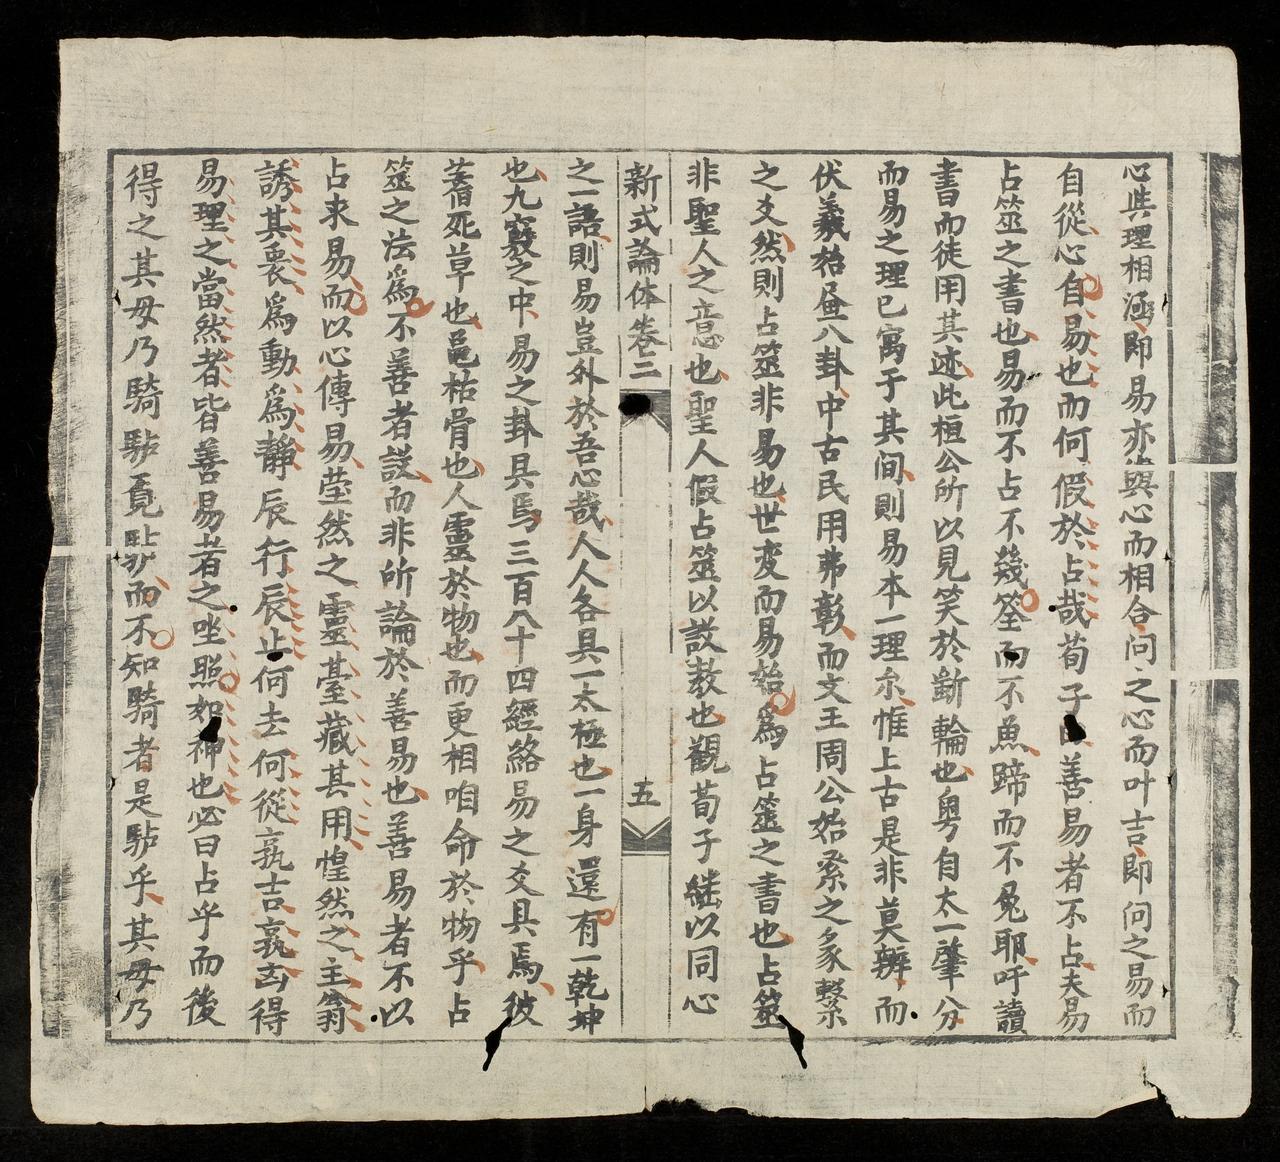 心與理相涵即易亦與心而相合問之心而叶吉即問之易而
自從心自易也而何假於占哉荀子曰善易者不占夫易
占筮之書也易而不占不幾筌而不魚蹄而不兔耶吁讀
書而徒用其迹此桓公所以見笑於斲輪也粤自太一肇分
而易之理已寓于其间則易本一理尓惟上古是非莫辨而
伏羲始畫八卦中古民用弗彰而文王周公始系之彖繋
之爻然則占筮非易也世変而易始為占筮之書也占筮
非聖人之意也聖人假占筮以設教也觀荀子継以同心
新式論体卷二 五
之一語則易豈外於吾心哉人人各具一太極也一身還有一乾坤
也九竅之中易之卦具焉三百八十四經絡易之爻具焉彼
蓍死草也黽枯骨也人靈於物也而更相咱命於物乎占
筮之法為不善者設而非所論於善易也善易者不以
占求易而以心傳易莹然之靈臺藏其用惶然之主翁
誘其衷為動為靜辰行辰止何去何從孰吉孰凶得
易理之當然者皆善易者之坐照如神也必曰占乎而後
得之其毋乃騎馿覓馿而不知騎者是馿乎其毋乃